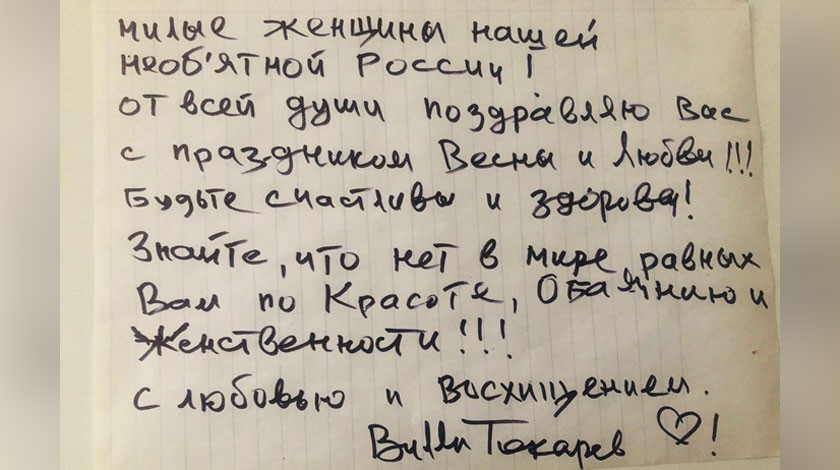 милые женщины нашей
необ'ятной России!
от всей души поздравляю Вас
с праздником Весны и Любви!!!
Будьте счастливы и здоровы!
Знайте, что нет в мире равных
Вам по Красоте, Обаянию и
Женственности!!!
с любовью и восхищением.
Вилли Токарев ♡!